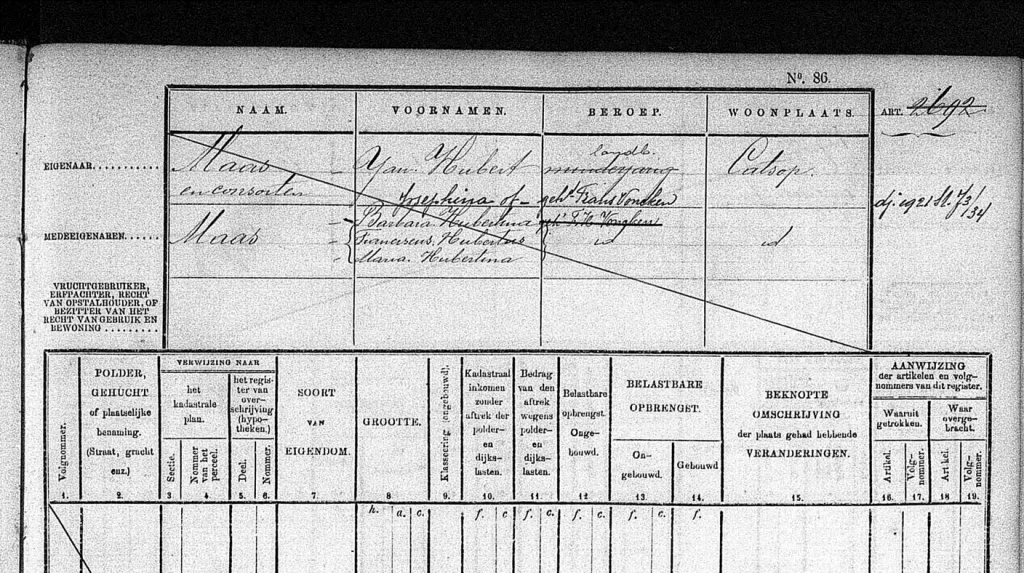 No. 86.
NAAM. VOORNAMEN. BEROEP. WOONPLAATS. ART. 2692
EIGENAAR........... Maas Jan Hubert landb. minderjarig Catsop.
en consorten Josephina of geh^d Frans Voncken
dj. 1921 St. 73/34
MEDEEIGENAREN..... Maas Barbara Hubertina geh^d F. H. Voncken
Franciscus Hubertus id id
Maria Hubertina
VRUCHTGEBRUIKER,
ERFPACHTER, RECHT
VAN OPSTALHOUDER, OF
BEZITTER VAN HET
RECHT VAN GEBRUIK EN
BEWONING.........
Volgnummer.
1.
POLDER,
GEHUCHT
of plaatselijke
benaming.
(Straat, gracht
enz.)
2.
VERWIJZING NAAR
het
kadastrale
plan.
Sectie.
3
Nommer
van het
perceel.
4.
het regis-
ter van
over-
schrijving
(hypo-
theken.)
Deel.
5.
Nommer.
6.
SOORT
VAN
EIGENDOM.
7.
GROOTTE.
8
Klasseering (ongebouwd).
9.
Kadastraal
inkomen
zonder
aftrek der
polder-
en
dijks-
lasten.
10.
Bedrag
van den
aftrek
wegens
polder-
en
dijks-
lasten.
11.
Belastbare
opbrengst.
Onge-
bouwd.
12
BELASTBARE
OPBRENGST.
On-
gebouwd.
13.
Gebouwd
14.
BEKNOPTE
OMSCHRIJVING
der plaats gehad hebbende
VERANDERINGEN.
15.
AANWIJZING
der artikelen en volg-
nommers van dit register.
Waaruit
getrokken.
Artikel.
16.
Volg-
nommer.
17.
Waar
overge-
bracht.
Artikel.
18
Volg-
nommer.
19.
h. a. c. f. c f. c. f. c. f. c. f.